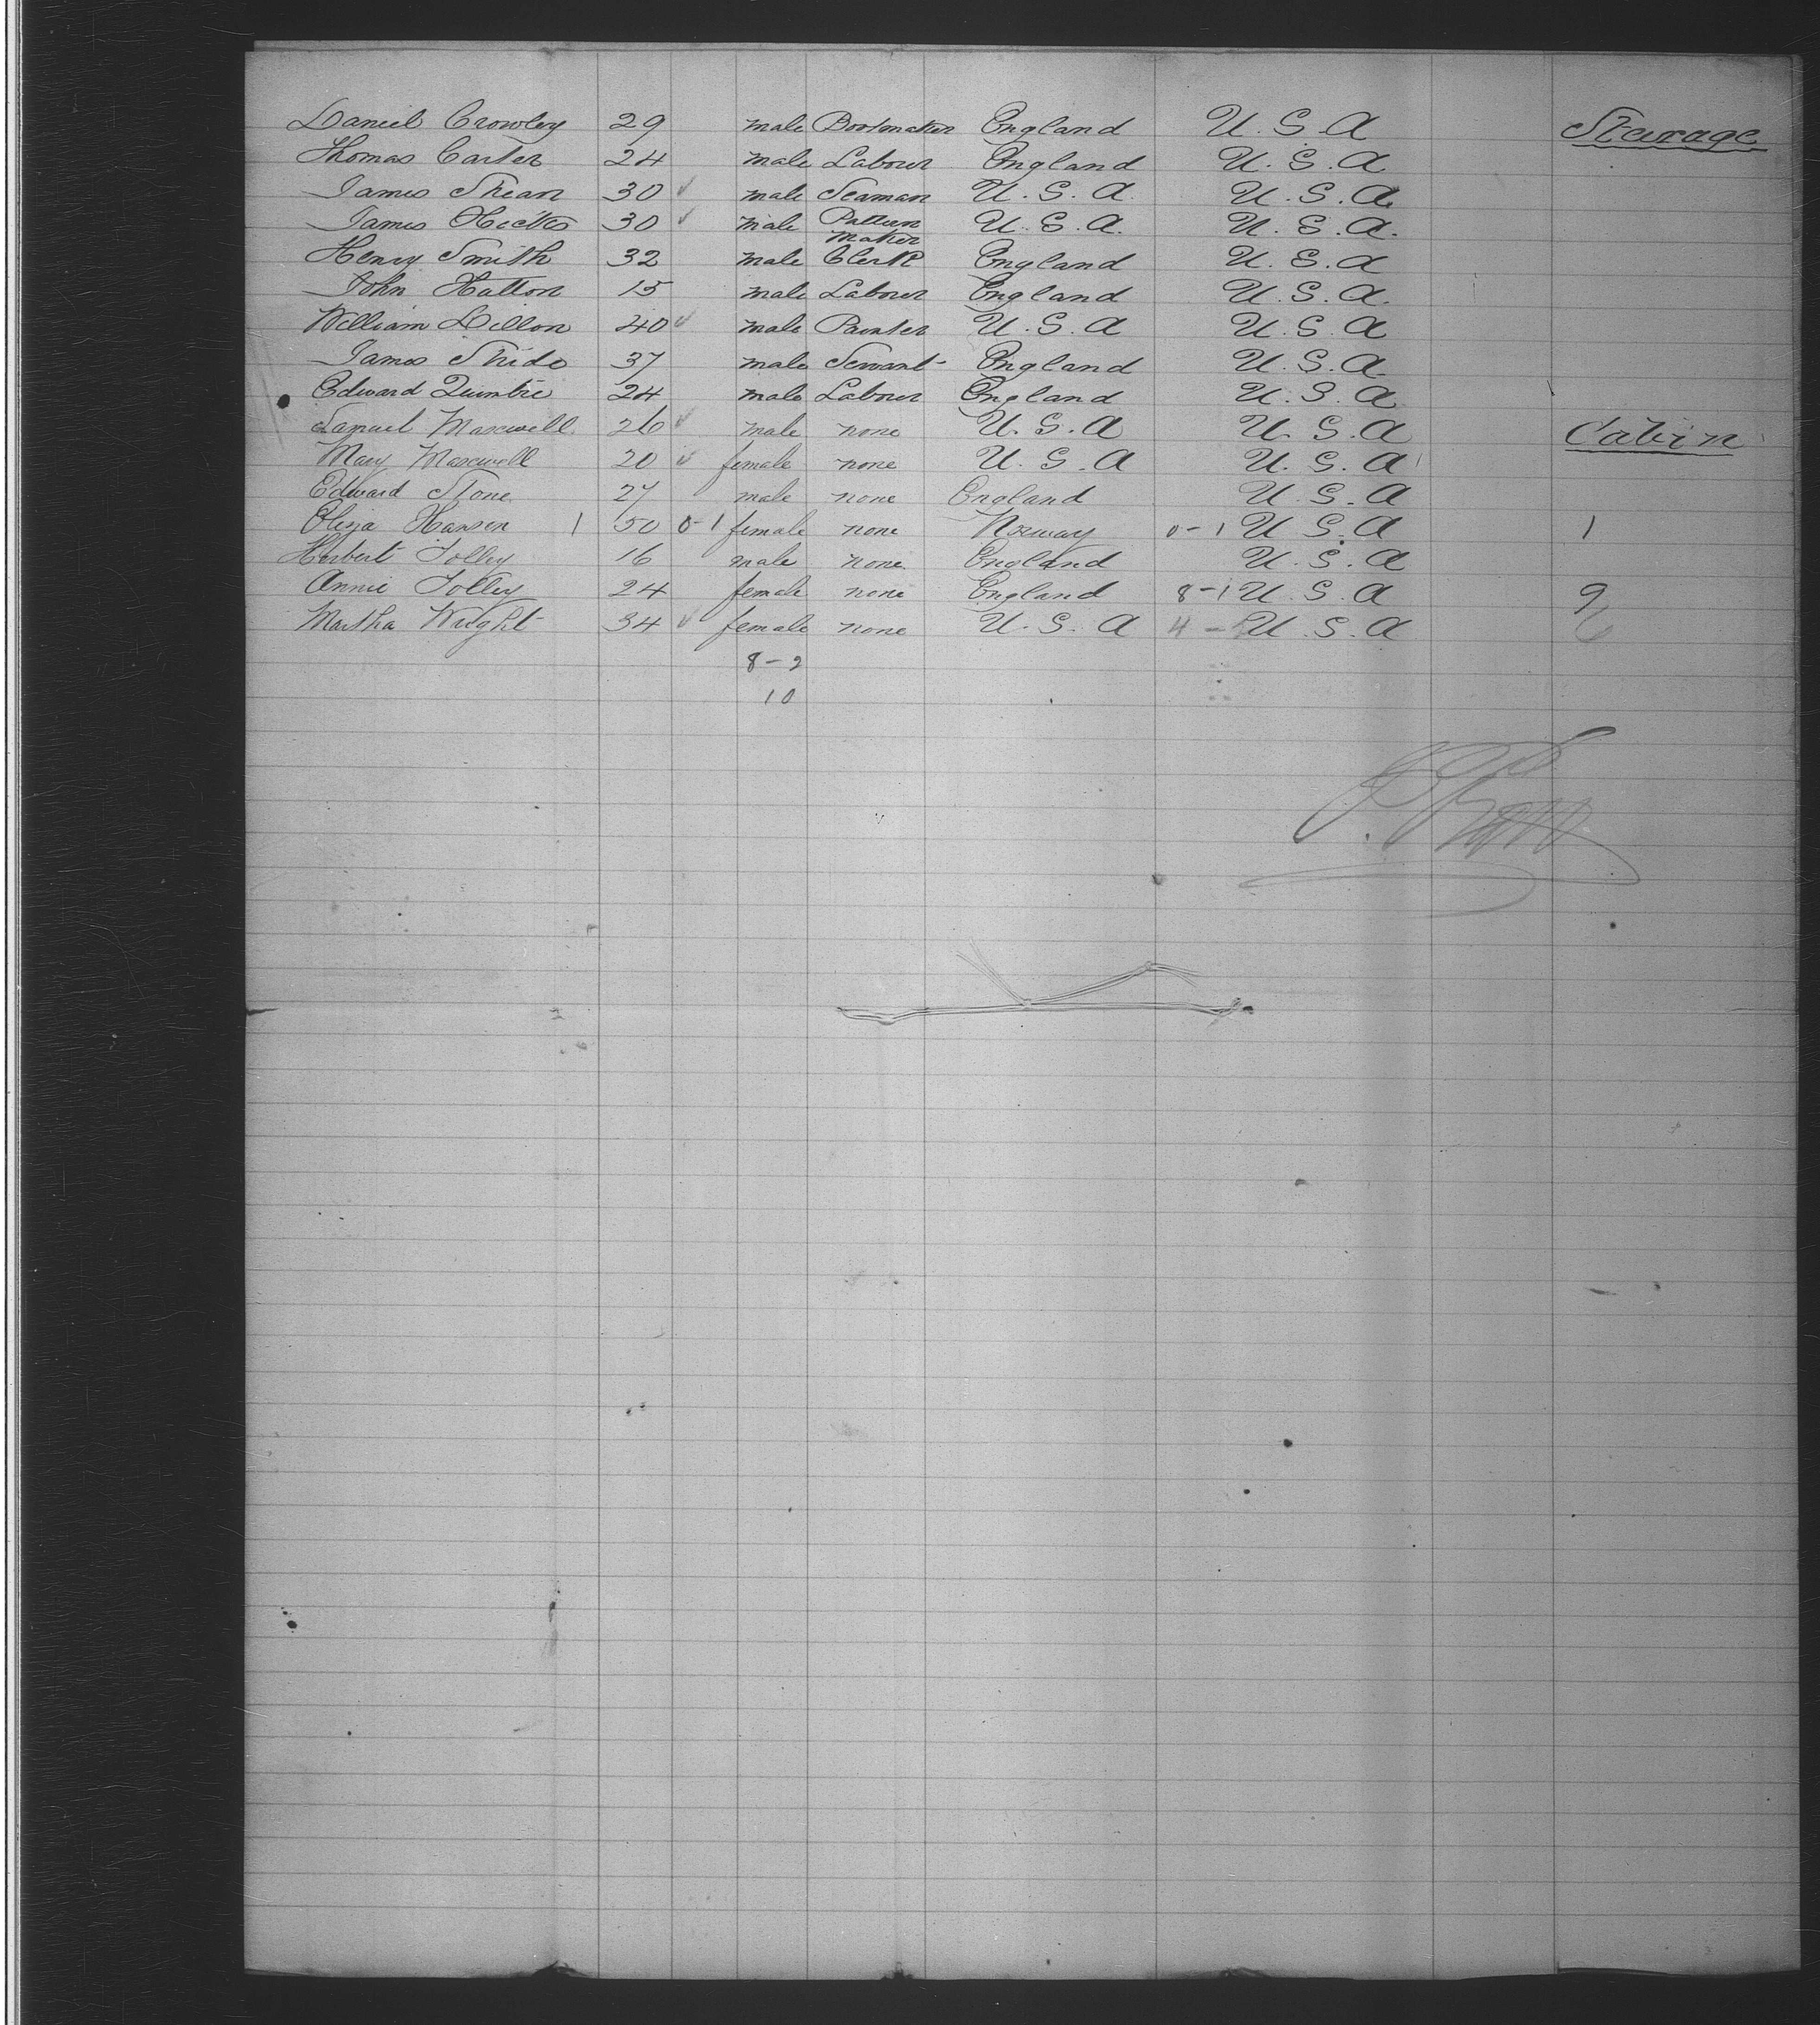 Daniel Crowley 29 male Bootmaker England U.S.A Steerage
Thomas Carter 24 male Labour England U.S.A
James Shean 30 ✓ male Seaman U.S.A. U.S.A.
James Hicks 30 ✓ male Pattern maker U.S.A. U.S.A.
Henry Smith 32 male Clerk England U.S.A
John Hatton 15 male Labour England U.S.A.
William Dillon 40 ✓ male Painter U.S.A U.S.A
James 37 male Servant England U.S.A.
Edward 24 male Labour England U.S.A
Samuel Maxwell 26 ✓ male none U.S.A U.S.A Cabin
Mary Maxwell 20 ✓ female none U.S.A U.S.A
Edward Stone 27 male none England U.S.A
Eliza Hansen 1 50 0-1 female none Norway 0-1 U.S.A 1
Herbert Jolley 16 male none England U.S.A
Annie Jolley 24 female none England 8-1 U.S.A 9
Martha Wright 34 ✓ female none U.S.A 4- U.S.A 6
8-2
10